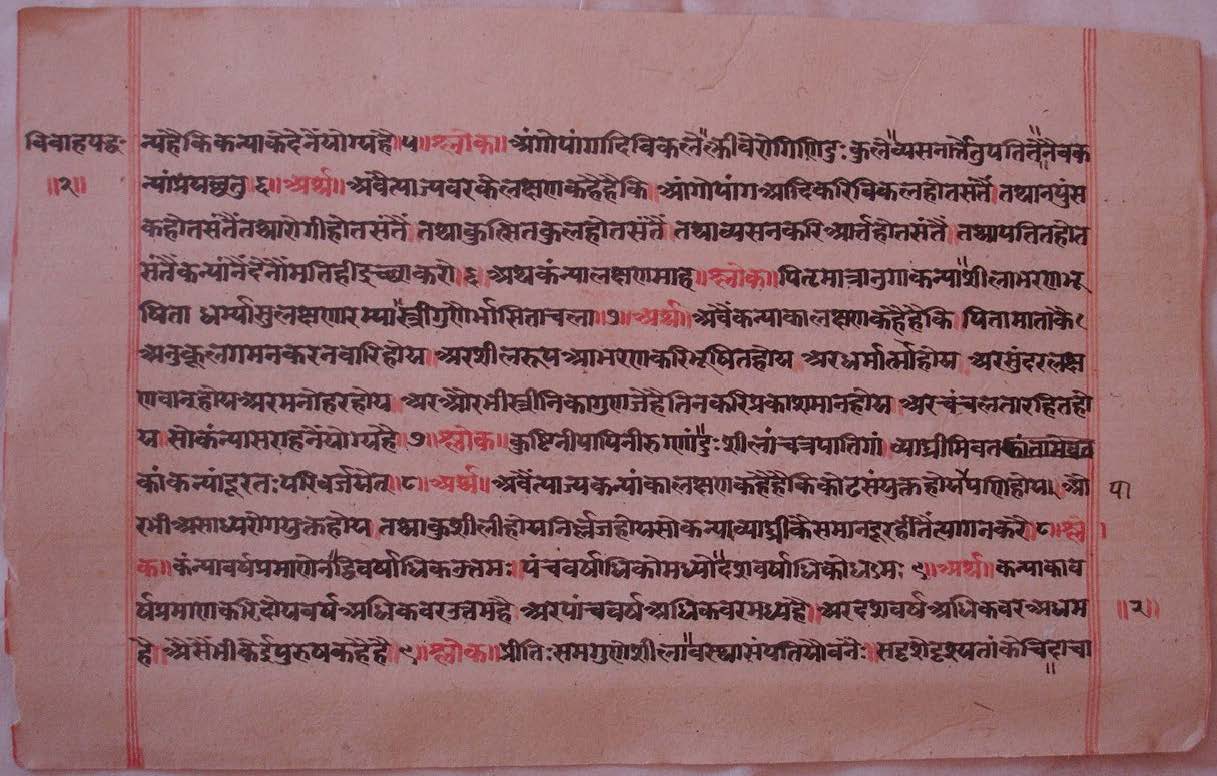 विवाहपटः
॥२॥
न्यहैकिकन्याकेदेनैयोग्यहै ५ ॥श्लोक॥ अंगोपांगादिविकलेक्लीवेरोगिणिदुःकुले व्यसनार्त्तेतुपतितेनैवक
न्यांप्रयच्छतु ६ ॥अर्थ॥ अवैत्याज्यवरकेलक्षणकहैहैकि आंगोपांगआदिकरिविकलहोतसंतैं तथानपुंस
कहोतसंतैंतथारोगीहोतसंतैं तथाकुत्सितकुलहोतसंतैं तथाव्यसनकरिआर्तहोतसंतैं तथापतितहोत
संतैंकन्यांनैंदेनौंमतिहीइच्छाकरो ६ अथकंन्यालक्षणमाह ॥श्लोक॥ पितृमात्रानुगाकन्या शीलाभरणभू
षिता धर्म्यासुलक्षणारम्या स्त्रीगुणैर्भासिताचला ७ ॥अर्थ॥ अवैंकन्याकालक्षणकहैहैकि पितामाताकै
अनुकूलगमनकरनवारिहोय अरशीलरूपआभरणकरिभूषितहोय अरधर्मात्माहोय अरसुंदरलक्ष
णवानहोयअरमनोहरहोय अरऔरभीस्त्रीनिकागुणजेहैतिनकरिप्रकाशमानहोय अरचंचलतारहितहो
य सोकंन्यासराहनेंयोग्यहै ७ ॥श्लोक॥ कुष्टिनीपापिनीरुगणां दुःशीलांचत्रपातिगां व्याघ्रीमिव
कांकन्यांदूरतःपरिवर्जयेत् ८ ॥अर्थ॥ अवैंत्याज्यकन्यांकालक्षणकहैहैकिकोढसंयुक्तहोयपणिहोय औ पा
रभीअसाध्यरोगयुक्तहोय तथाकुशीलीहोयनिर्ल्लजहोयसोकन्याव्याघ्रीकैसमानदूरहीतैंत्यागनकरै ८ ॥श्लो
क॥ कंन्यावर्षप्रमाणेनद्विवर्षाधिकउत्तमः पंचवर्षाधिकोमध्यो दशवर्षाधिकोधऽमः ९ ॥अर्थ॥ कन्याकाव
र्षप्रमाणकरिदोयवर्षअधिकवरउत्तमहै अरपांचवर्षअधिकवरमध्यहै अरदशवर्षअधिकवरअधम ॥२॥
है असैंभीकेईपुरुषकहैहै ९ ॥श्लोक॥ प्रीतिःसमगुणेशीलावस्थासंपतियौवनैः सदृशेदृश्यतांकेचिदाचा